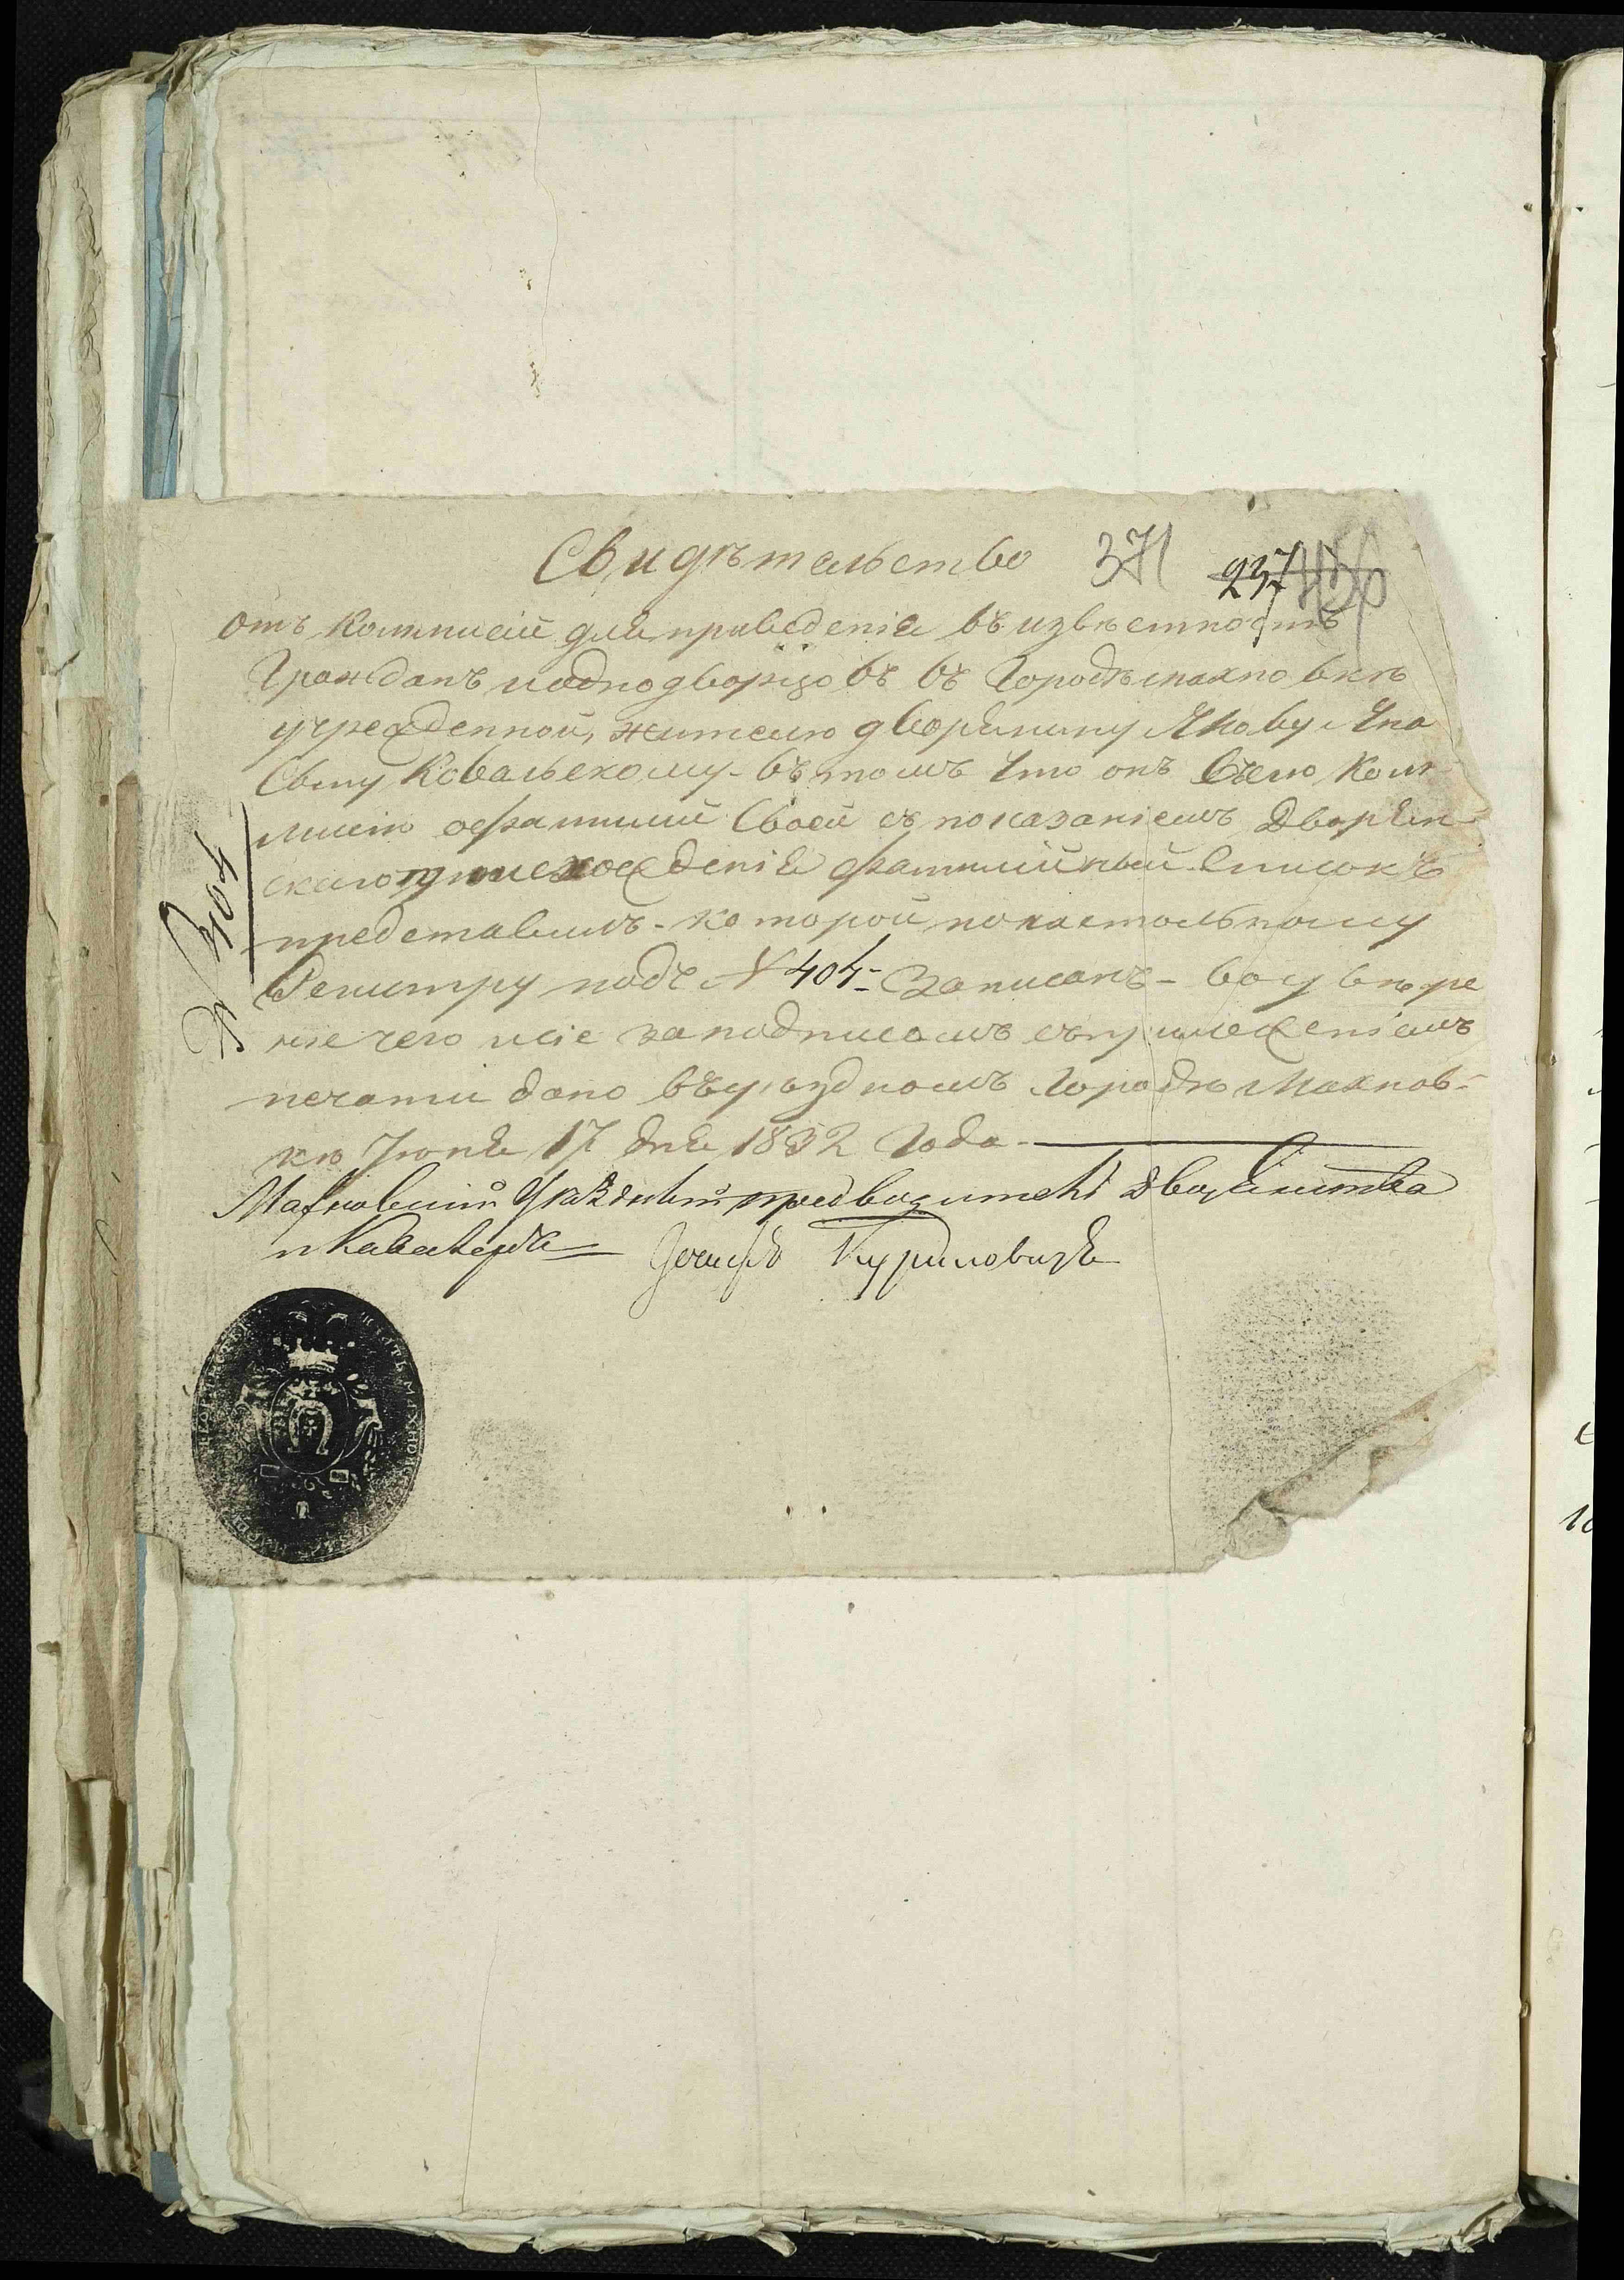 Свидѣтельство 371 237
отъ коммисіи для приведенія въ извѣстность
Гражданъ и однодворцовъ въ Городѣ махновкѣ
учрежденной, жителю дворянину Якову Яна
Сыну Ковальскому - въ томъ что онъ въ сію ком-
мисію о фамиліи Своей съ показаніемъ Дворян-
скаго происхожденія фамилійный Списокъ
представилъ - которой по настольному
Регистру подъ № 404 - Записанъ - во увѣре
ніе чего и сіе за подписомъ съ приложеніемъ
печати дано въ уѣздномъ Городѣ Махнов-
кѣ Іюня 17 дня 1832 Года -
Махновскій Уѣздный предводитель Дворянства
и Кавалеръ
№ 404
ПЕЧАТЬ МАХНО